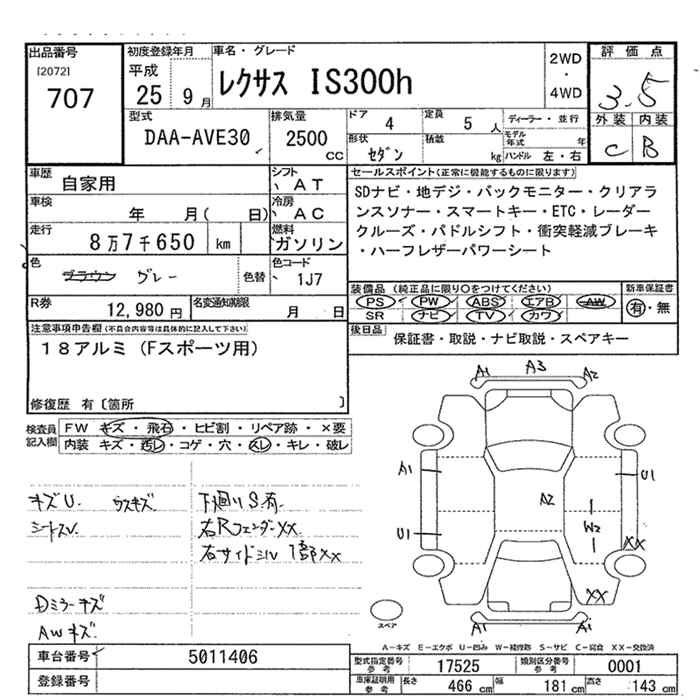 出品番号
[2072]
707
初度登録年月
平成
25 9 月
車名・グレード
レクサス IS300h
2WD
・
4WD
評価点
3.5
外装 内装
C B
型式
DAA-AVE30
排気量
2500
CC
ドア 4
定員 5 人
ディーラー・並行
形状 セダン
積載 kg
モデル年式 年
ハンドル 左・右
車歴 自家用
シフト AT
車検 年 月( 日)
冷房 AC
走行 8万7千650 km
燃料 ガソリン
色 ブラウン グレー
色替
色コード 1J7
R券 12,980 円
名変通知期限 月 日
セールスポイント(正常に機能するものに限ります)
SDナビ・地デジ・バックモニター・クリアラ
ンスソナー・スマートキー・ETC・レーダー
クルーズ・パドルシフト・衝突軽減ブレーキ
・ハーフレザーパワーシート
装備品 (純正品に限り○をつけてください)
新車保証書
PS PW ABS エアB AW
SR ナビ TV カワ
有・無
後日品 保証書・取説・ナビ取説・スペアキー
注意事項申告欄(不具合内容等は具体的に記入して下さい)
18アルミ (Fスポーツ用)
修復歴 有〔箇所 〕
検査員記入欄
FW キズ・飛石・ヒビ割・リペア跡・×要
内装 キズ・汚レ・コゲ・穴・スレ・キレ・破レ
キズU. ウスキズ
シートスV
下廻りS有.
右Rフェンダー××
右サイドシル 1部××
Dミラーキズ
AWキズ.
A1 A3 A2
A1
U1
A2
U1
W2
XX
XX
A1 A1
スペア
A-キズ E-エクボ U-凹み W-補修跡 S-サビ C-腐食 XX-交換済
車台番号 5011406
登録番号
型式指定番号 参考 17525
類別区分番号 参考 0001
車庫証明用 参考
長さ 466 cm
幅 181 cm
高さ 143 cm